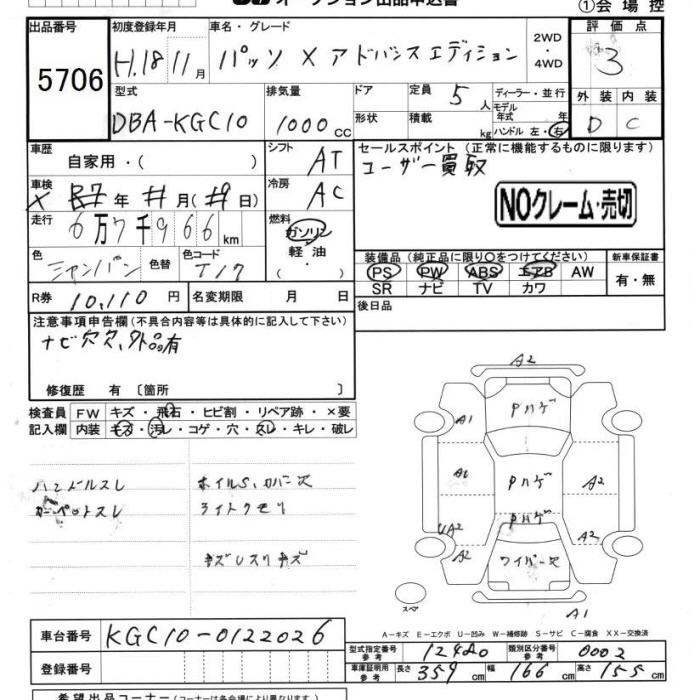 オークション出品申込書
①会場控
出品番号 初度登録年月 車名・グレード 2WD・4WD 評価点
5706 H.18 11月 パッソ X アドバンスエディション 3
型式 排気量 ドア 定員 5人 ディーラー・並行 外装 内装
DBA-KGC10 1000cc 形状 積載 kg モデル年式 年 ハンドル 左・右 D C
車歴 自家用・( ) シフト AT セールスポイント (正常に機能するものに限ります)
ユーザー買取
車検 X 年 月( 日) 冷房 AC
NOクレーム・売切
走行 6万7千966km 燃料 ガソリン 軽油 ( ・ )
色 シャンパン 色替 色コード T17
装備品 (純正品に限り○をつけてください) 新車保証書
PS PW ABS エアB AW 有・無
SR ナビ TV カワ
R券 10,110円 名変期限 月 日
後日品
注意事項申告欄(不具合内容等は具体的に記入して下さい)
ナビ穴欠、外品有
修復歴 有 〔箇所 〕
検査員 FW キズ・飛石・ヒビ割・リペア跡・×要
記入欄 内装 キズ・汚レ・コゲ・穴・スレ・キレ・破レ
ハンドルスレ ホイルS、カバー欠
カーペットスレ ライトクモリ
キズUスリキズ
A2
A1 Pハゲ
A2 Pハゲ A2
Pハゲ
UA2 A2
A2 ワイパー欠
スペア A1
A-キズ E-エクボ U-凹み W-補修跡 S-サビ C-腐食 XX-交換済
車台番号 KGC10-0122026
型式指定番号 参考 12480 類別区分番号 参考 0002
登録番号
車庫証明用 参考 長さ 359cm 幅 166cm 高さ 155cm
希望出品コーナー (コーナーは各会場により異なります)